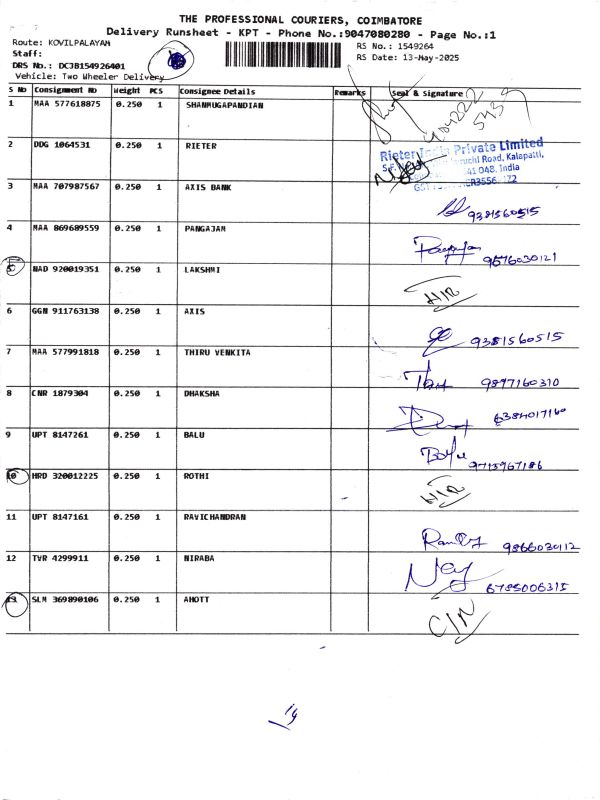 THE PROFESSIONAL COURIERS, COIMBATORE
Delivery Runsheet - KPT - Phone No.:9047080280 - Page No.:1
Route: KOVILPALAYAM
RS No.: 1549264
Staff:
RS Date: 13-May-2025
DRS No.: DCJB154926401
Vehicle: Two Wheeler Delivery
S No Consignment No Weight PCS Consignee Details Remarks Seal & Signature
1 MAA 577618875 0.250 1 SHANMUGAPANDIAN
2 DDG 1064531 0.250 1 RIETER Rieter India Private Limited
3 MAA 707987567 0.250 1 AXIS BANK 9381560515
4 MAA 869689559 0.250 1 PANGAJAM 9576030121
5 NAD 920019351 0.250 1 LAKSHMI H/R
6 GGN 911763138 0.250 1 AXIS 9381560515
7 MAA 577991818 0.250 1 THIRU VENKITA 9897160310
8 CNR 1879304 0.250 1 DHAKSHA 6384017160
9 UPT 8147261 0.250 1 BALU 9715967186
10 HRD 320012225 0.250 1 ROTHI H/R
11 UPT 8147161 0.250 1 RAVICHANDRAN 9866030112
12 TVR 4299911 0.250 1 NIRABA 6785006315
13 SLM 369890106 0.250 1 AHOTT C/R